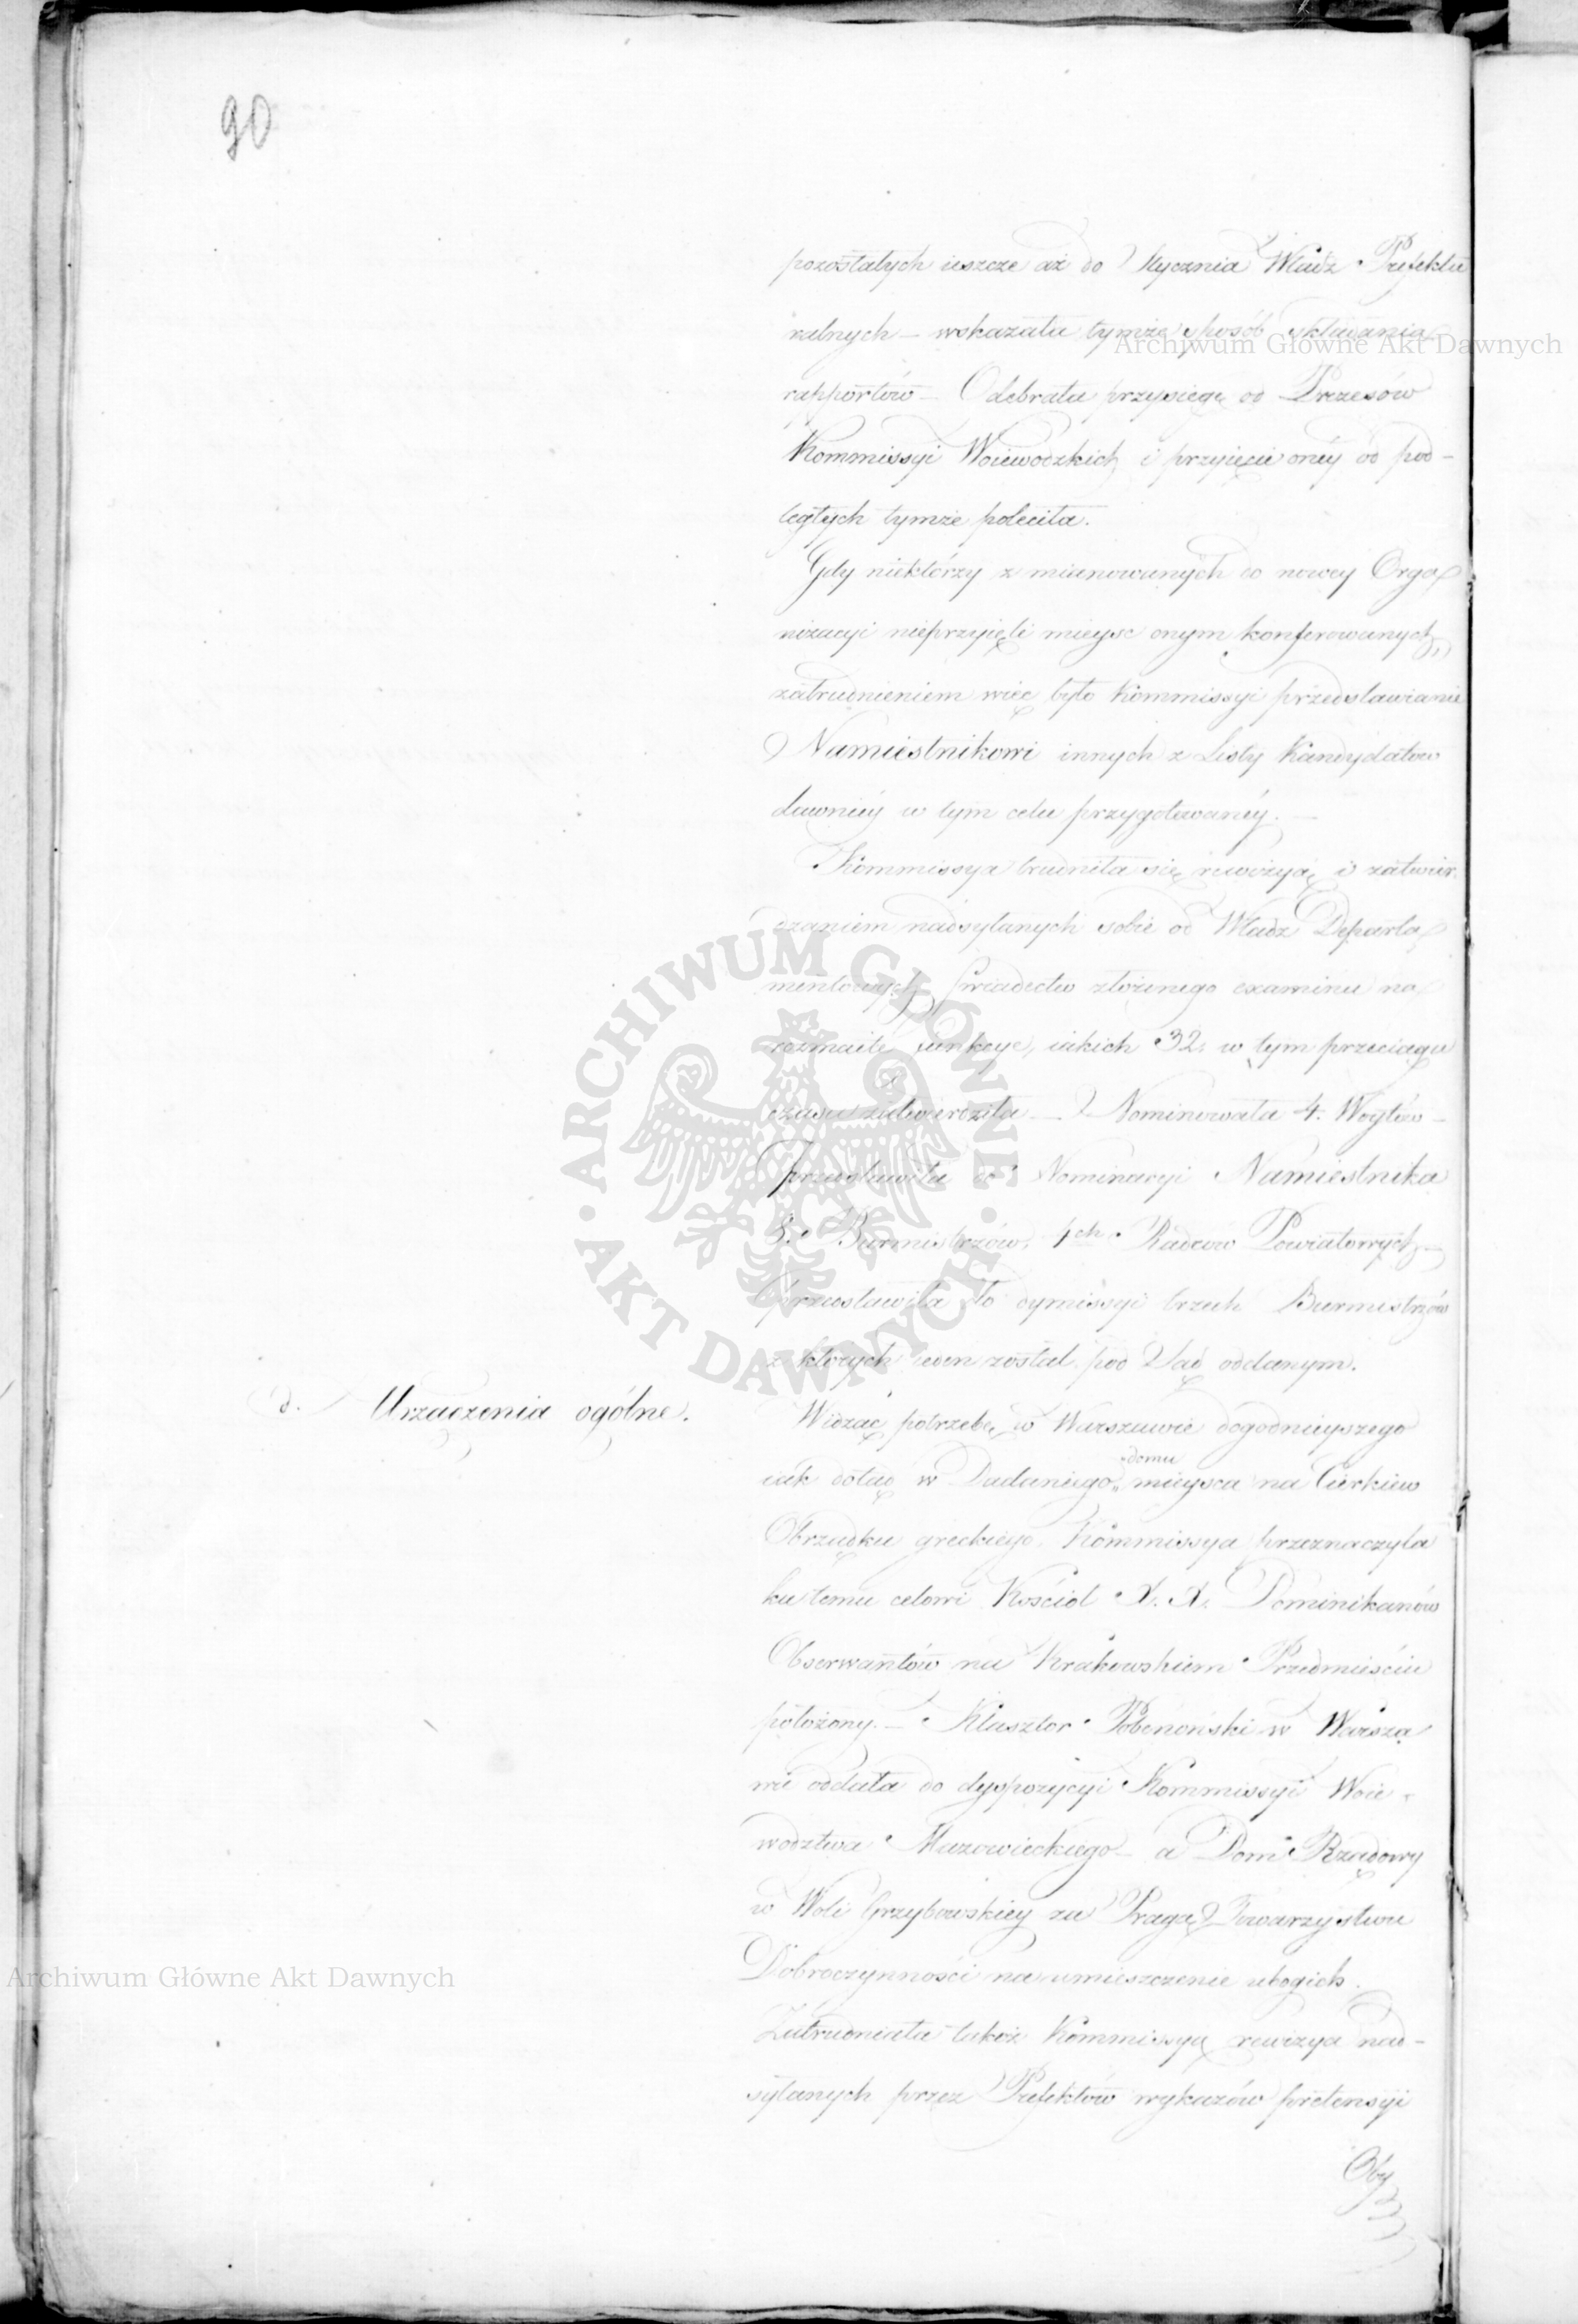 90
pozostałych ieszcze aż do Stycznia Władz Prefektu
ralnych – wskazała tymże sposób składania
rapportów – Odebrała przysięgę od Prezesów
Kommissyi Woiewodzkich i przyięcie onéy od pod-
ległych tymże poleciła.
Gdy niektórzy z mianowanych do nowey Orga
nizacyi nieprzyięli mieysc onym konferowanych,
zatrudnieniem więc było Kommissyi przedstawianie
Namiestnikowi innych z Listy Kandydatow
dawniéy w tym celu przygotowanéy. –
Kommissya trudniła się rewizyą i zatwier
dzaniem nadsyłanych sobie od Władz Departa
mentowych świadectw złożonego examinu na
rozmaite funkcye, iakich 32. w tym przeciągu
czasu zatwierdziła – Nominowała 4. Woytów –
przedstawiła do Nominacyi Namiestnika
3. Burmistrzów, 4ch Radców Powiatowych –
przedstawiła do dymissyi trzech Burmistrzów
z których ieden został pod Sąd oddanym.
d. Urządzenia ogólne.
Widząc potrzebę w Warszawie dogodnieyszego
iak dotąd w Dadaniego domu mieysca na Cierkiew
Obrządku greckiego. Kommissya przeznaczyła
ku temu celowi Kościół X. X. Dominikanów
Obserwantów na Krakowskiem Przedmieściu
położony. – Klasztor Pobenoński w Warsza
wie oddała do dyspozycyi Kommissyi Woie
wodztwa Mazowieckiego – a Dom Rządowy
w Woli Grzybowskiey za Pragą Towarzystwu
Dobroczynności na umieszczenie ubogich.
Zatrudniała także Kommissyą rewizya nad-
syłanych przez Prefektów wykazów pretensyi
Oby
Archiwum Główne Akt Dawnych
ARCHIWUM GŁÓWNE AKT DAWNYCH
Archiwum Główne Akt Dawnych